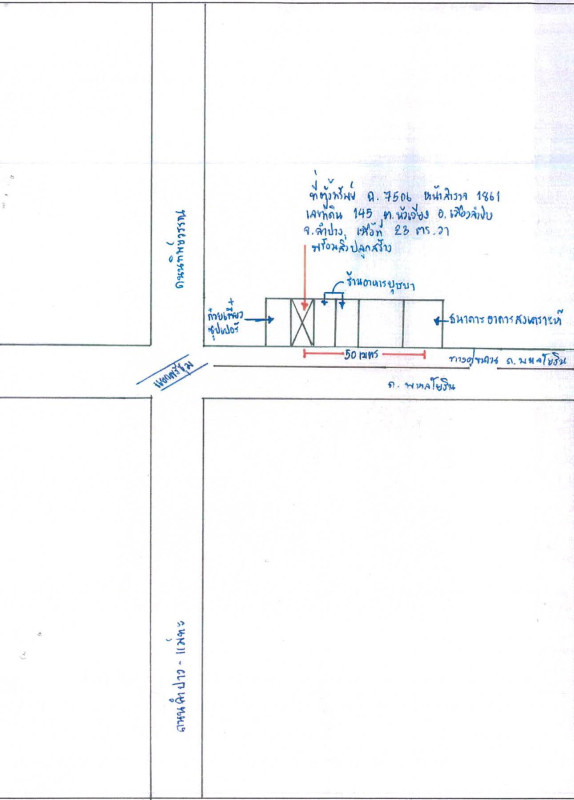 ที่ตั้งทรัพย์ ฉ. 7506 หน้าสำรวจ 1861
เลขที่ดิน 145 ต. หัวเวียง อ. เมืองลำปาง
จ. ลำปาง, เนื้อที่ 23 ตร.วา
พร้อมสิ่งปลูกสร้าง
ถนนทิพย์วรรณ
ร้านอาหารบุษบา
ก๋วยเตี๋ยว
ซุปเปอร์
ธนาคารอาคารสงเคราะห์
50 เมตร
ทางคู่ขนาน ถ. พหลโยธิน
แยกศรีชุม
ถ. พหลโยธิน
ถนนลำปาง - แม่ทะ